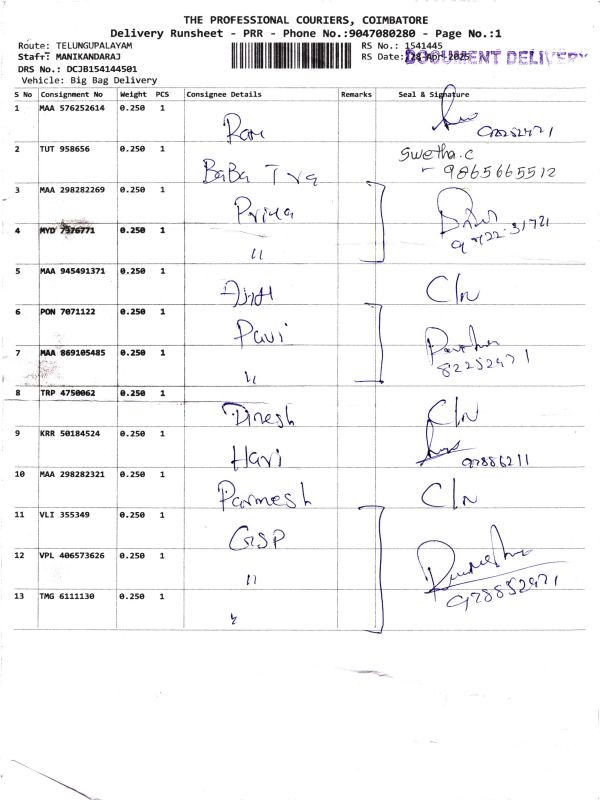 THE PROFESSIONAL COURIERS, COIMBATORE
Delivery Runsheet - PRR - Phone No.:9047080280 - Page No.:1
Route: TELUNGUPALAYAM RS No.: 1541445
Staff: MANIKANDARAJ RS Date: 28-Apr-2025 DOCUMENT DELIVERY
DRS No.: DCJB154144501
Vehicle: Big Bag Delivery
S No Consignment No Weight PCS Consignee Details Remarks Seal & Signature
1 MAA 576252614 0.250 1 Ram
2 TUT 958656 0.250 1 BaBa Tra Swetha.c
9865665512
3 MAA 298282269 0.250 1 Priya
4 MYD 7376771 0.250 1 "
5 MAA 945491371 0.250 1 C/n
6 PON 7071122 0.250 1 Pavi
7 MAA 869105485 0.250 1 " 82252971
8 TRP 4750062 0.250 1 Dinesh C/n
9 KRR 50184524 0.250 1 Hari
10 MAA 298282321 0.250 1 Parmesh C/n
11 VLI 355349 0.250 1 GSP
12 VPL 406573626 0.250 1 "
13 TMG 6111130 0.250 1 "